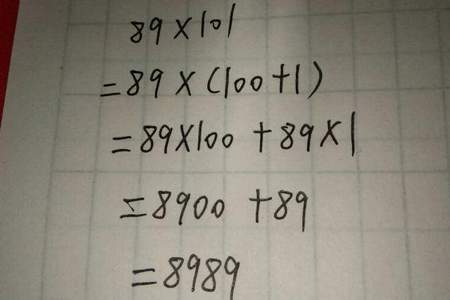 89×101
=89×(100+1)
=89×100+89×1
=8900+89
=8989